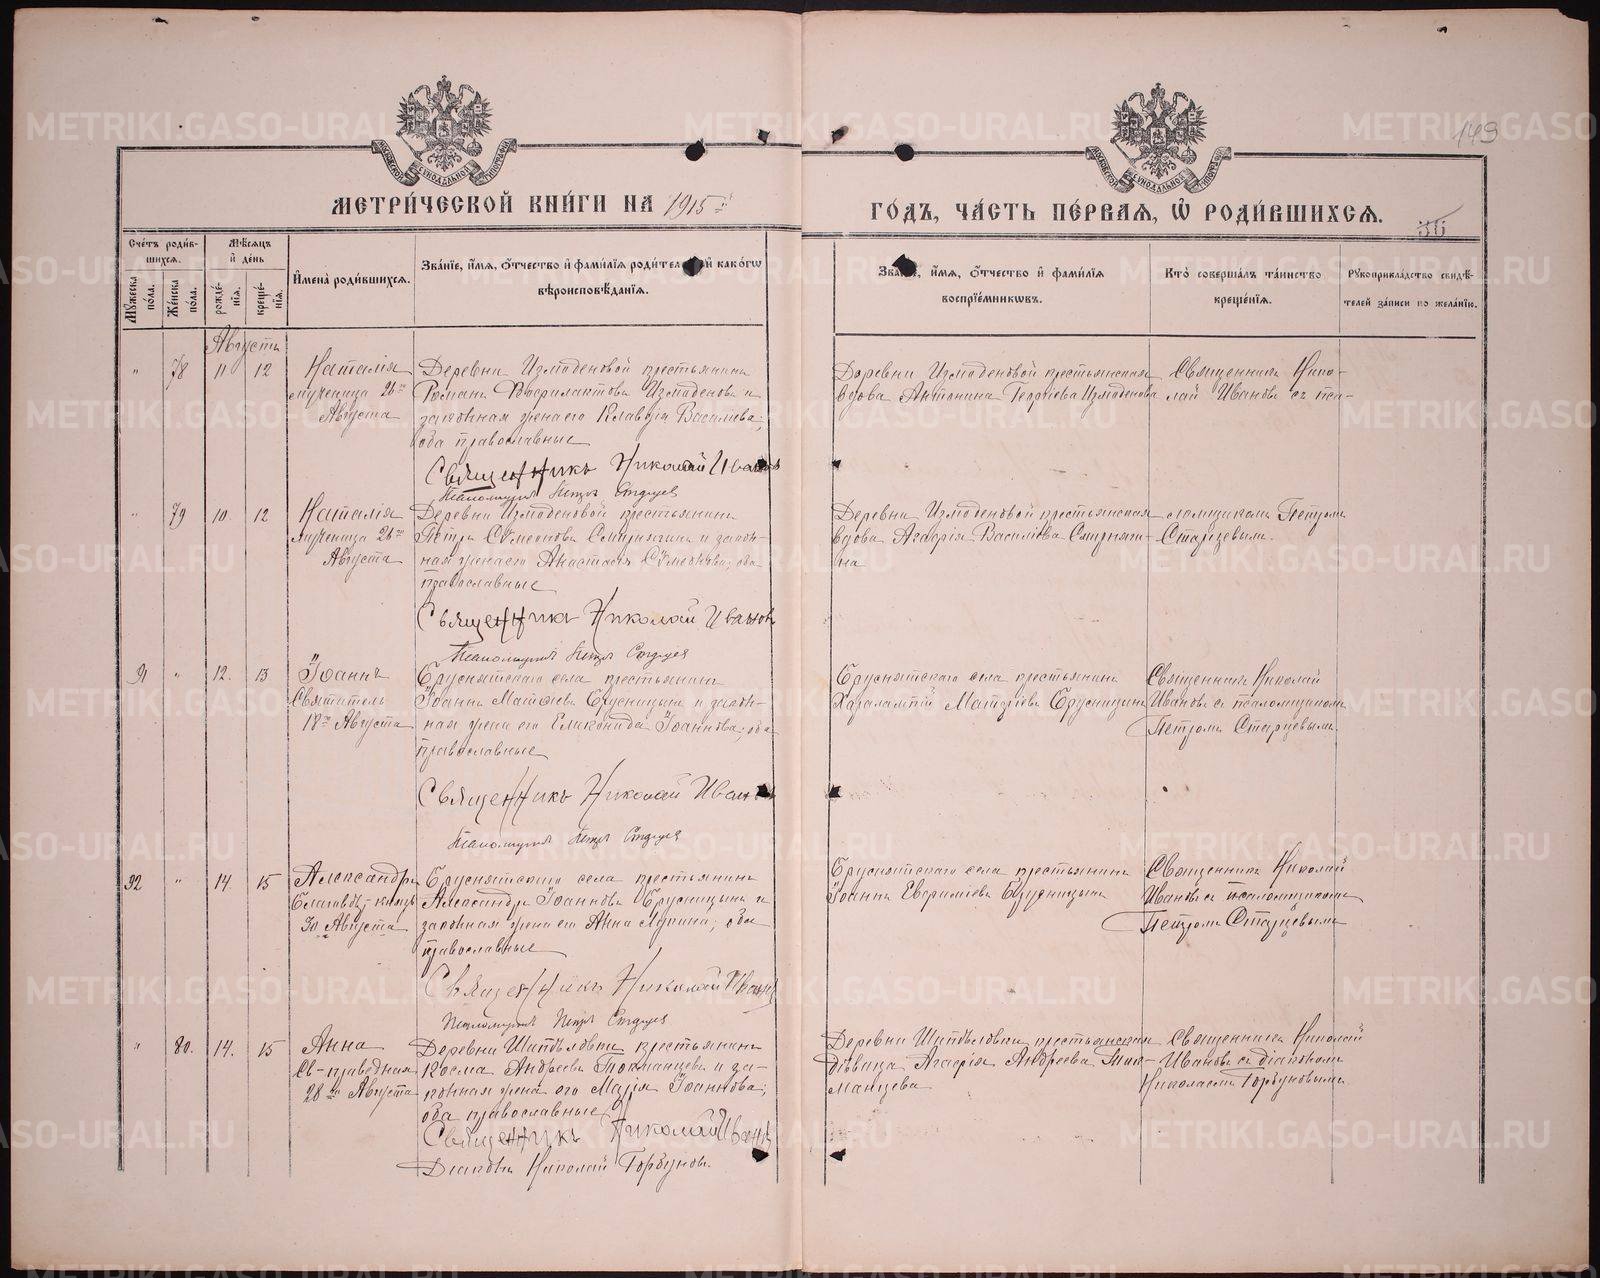 149
МОСКОВСКОЙ СѴНОДАЛЬНОЙ ТИПОГРАФІИ
МОСКОВСКОЙ СѴНОДАЛЬНОЙ ТИПОГРАФІИ
МЕТРИ́ЧЕСКОЙ КНИ́ГИ НА 1915 й
ГО́ДЪ, ЧА́СТЬ ПЕ́РВАЯ, Ѡ РОДИ́ВШИХСЯ.
36
Сче́тъ роди́в-
шихся.
Мѣ́сяцъ
и҆ де́нь
Му́жеска по́ла.
Же́нска по́ла.
рожде́-
нія.
креще́-
нія.
И҆мена̀ роди́вшихся.
Зва́ніе, и҆́мя, ѻ҆́тчество и҆ фами́лія роди́телей, и҆ како́гѡ
вѣроисповѣ́данія.
Зва́ніе, и҆́мя, ѻ҆́тчество и҆ фами́лія
воспріе́мникѡвъ.
Кто̀ соверша́лъ та́инство
креще́нія.
Рꙋкоприкла́дство свидѣ́-
телей за́писи по жела́нію.
Августъ
" 78 11 12
Наталія
мученица 26го
Августа
Деревни Измоденовой крестьянинъ
Романъ Феофилактовъ Измоденовъ и
законная жена его Клавдія Васильева;
оба православные
Священникъ Николай Ивановъ
Псаломщикъ Петръ Старцев
Деревни Измоденовой крестьянская
вдова Антонина Георгіева Измоденова
Священникъ Нико-
лай Ивановъ съ пса-
" 79 10. 12
Наталія
мученица 26го
Августа
Деревни Измоденовой крестьянинъ
Петръ Сѵмеоновъ Смирнягинъ и закон-
ная жена его Анастасія Сѵмеонова; оба
православные
Священникъ Николай Ивановъ
Псаломщикъ Петръ Старцев
Деревни Измоденовой крестьянская
вдова Агафія Васильева Смирняги-
на
ломщикомъ Петромъ
Старцевымъ.
91 " 12. 13
Іоаннъ
Святитель
18го Августа
Бруснятскаго села крестьянинъ
Іоаннъ Матѳіевъ Брусницынъ и закон-
ная жена его Еликонида Іоаннова; оба
православные
Священникъ Николай Ивановъ
Псаломщикъ Петръ Старцев
Бруснятскаго села крестьянинъ
Харалампій Матѳіевъ Брусницынъ
Священникъ Николай
Ивановъ съ псаломщикомъ
Петромъ Старцевымъ.
92 " 14. 15
Александръ
Благовѣр. князь
30 Августа
Бруснятскаго села крестьянинъ
Александръ Іоанновъ Брусницынъ и
законная жена его Анна; оба
православные
Священникъ Николай Ивановъ
Псаломщикъ Петръ Старцев
Бруснятскаго села крестьянинъ
Іоаннъ Евфиміевъ Брусницынъ
Священникъ Николай
Ивановъ съ псаломщикомъ
Петромъ Старцевымъ
" 80. 14. 15
Анна
Св-праведная
28го Августа
Деревни Шипѣловки крестьянинъ
Косма Андреевъ Токманцевъ и за-
конная жена его Марія Іоаннова;
оба православные
Священникъ Николай Ивановъ
Діаконъ Николай Горбуновъ.
Деревни Шипѣловки крестьянская
дѣвица Агафія Андреева Ток-
манцева
Священникъ Николай
Ивановъ съ діакономъ
Николаемъ Горбуновымъ
METRIKI.GASO-URAL.RU